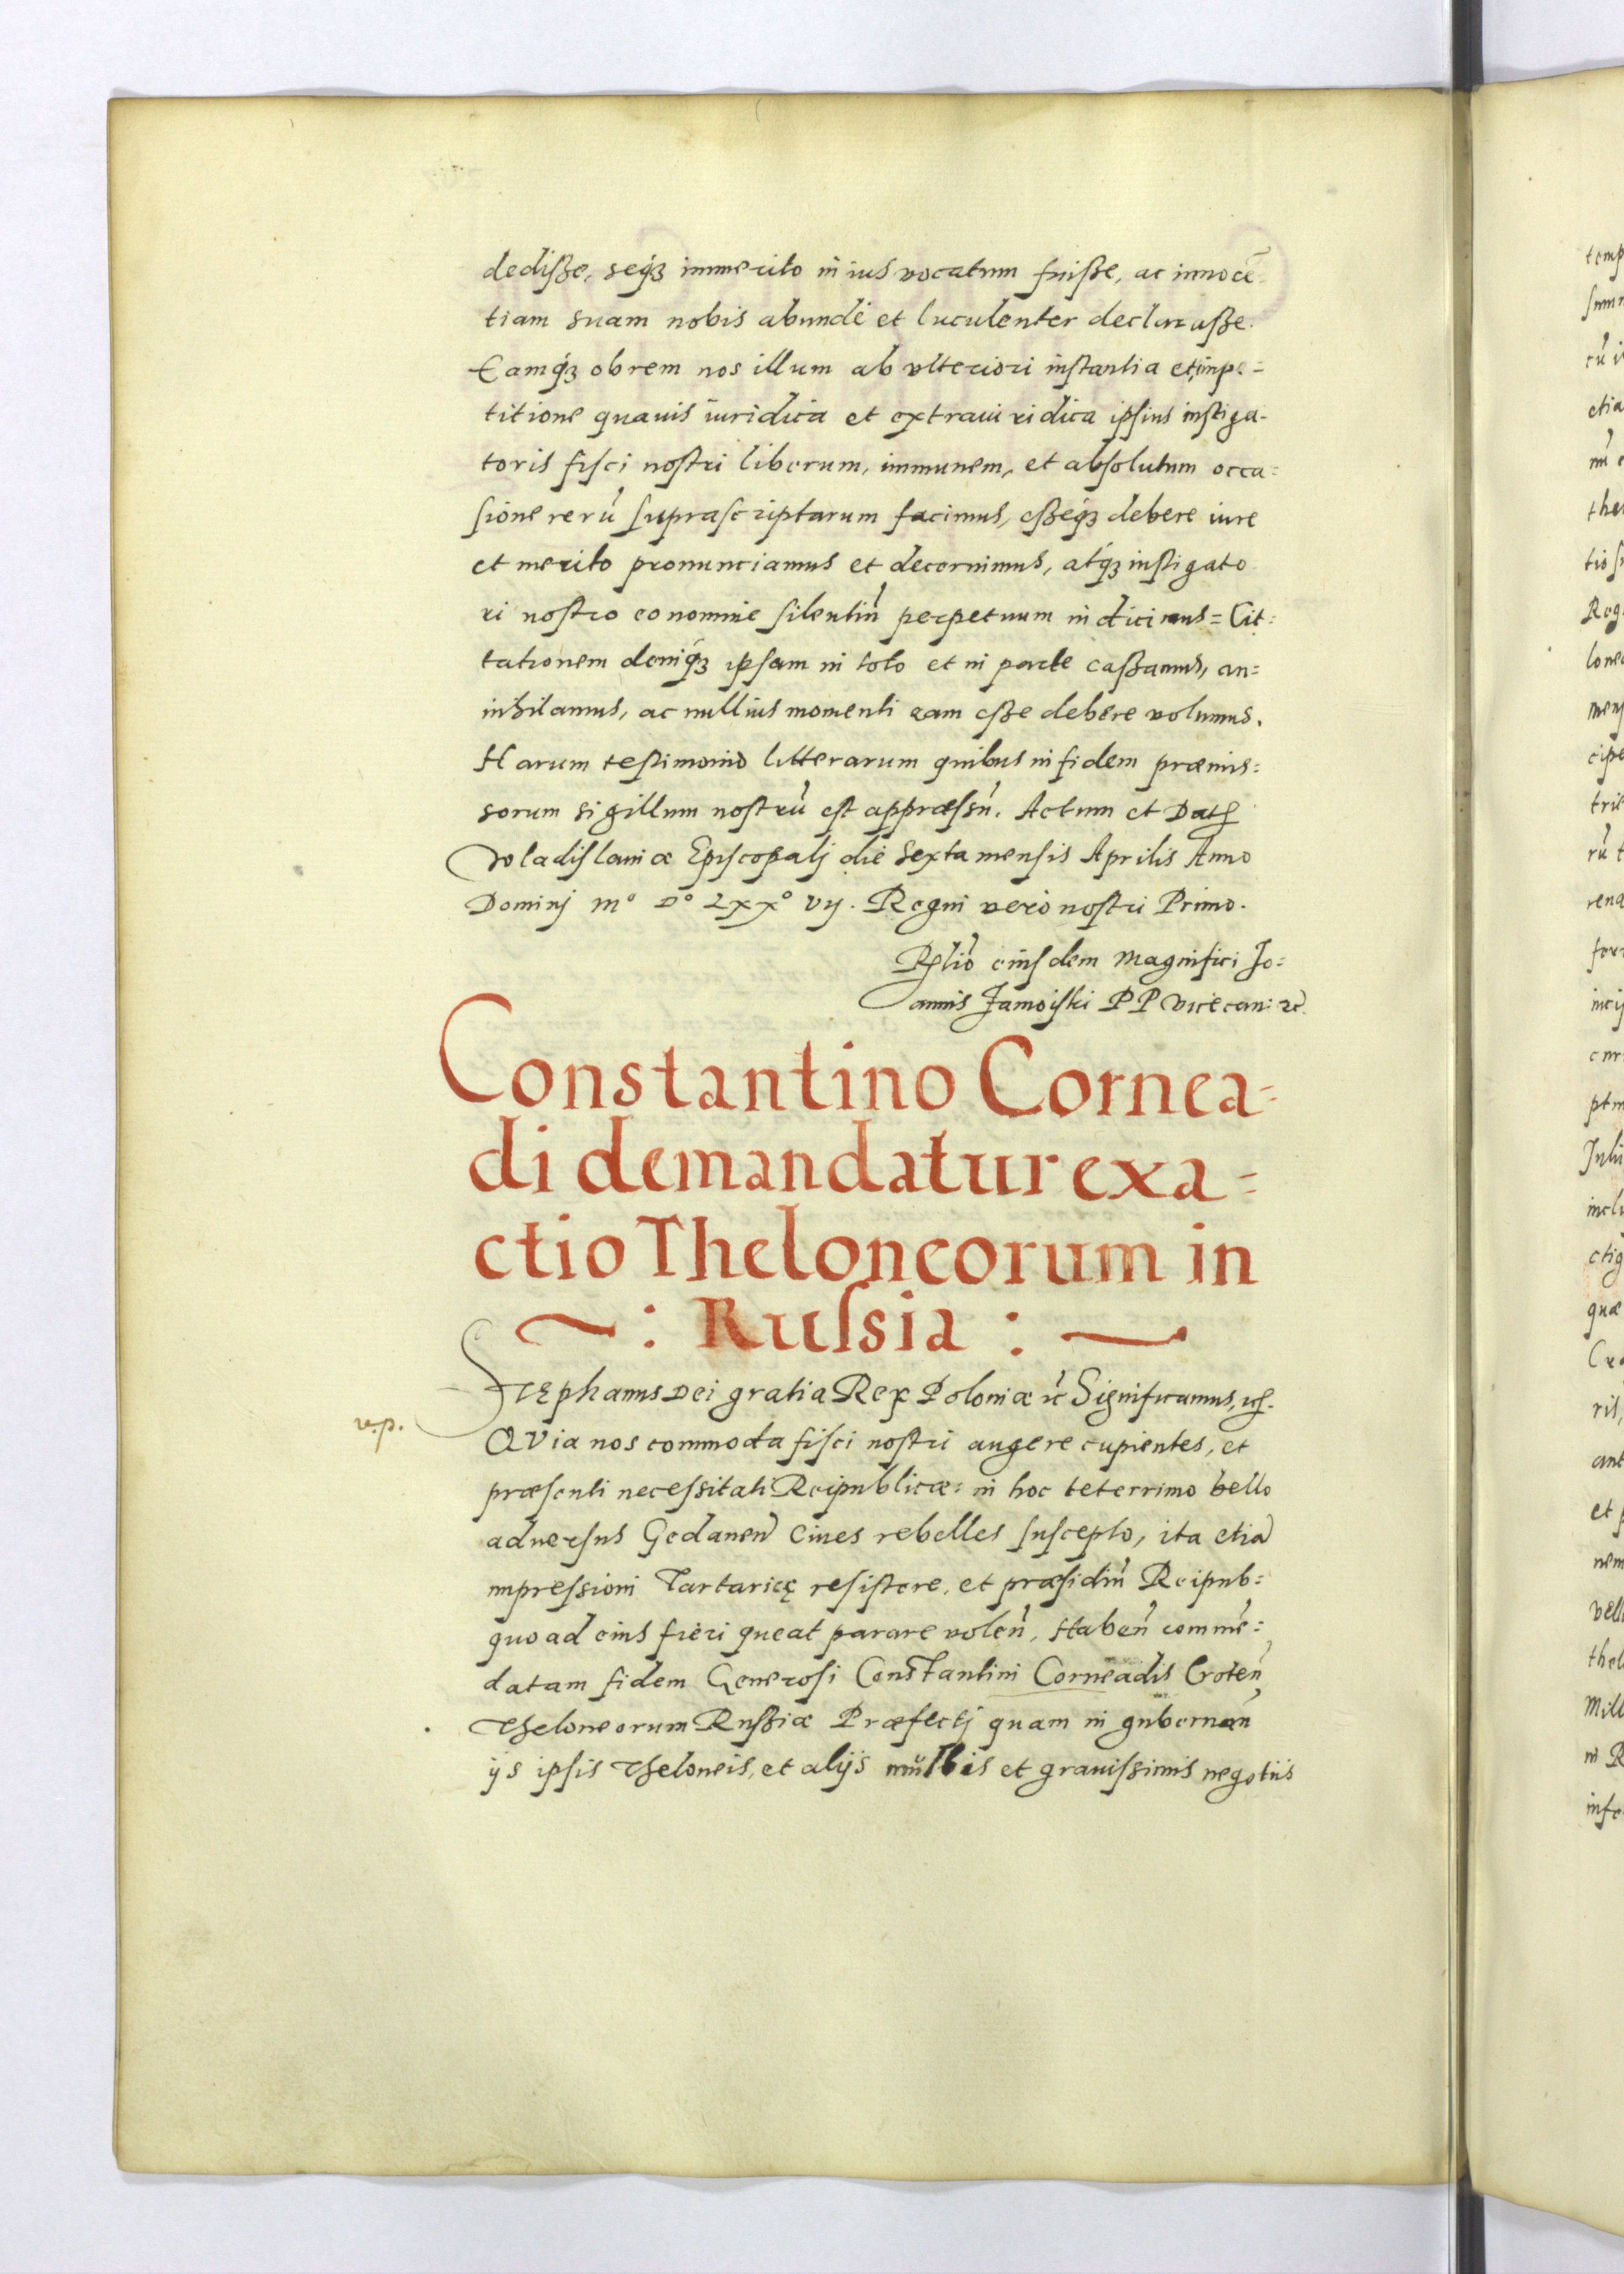 dediſße, seqȝ immerito in ius vocatum fuiſße, ac innocē
tiam suam nobis abundè et luculenter declaraſße.
Eamqȝ obrem nos illum ab vlteriori inſtantia et impe=
titione quauis iuridica et extraiuridica ipſius inſtiga-
toris fiſci noſtri liberum, immunem, et abſolutum occa=
ſione rerū ſupraſcriptarum facimus, eſßeqȝ debere iure
et merito pronunciamus et decernimus, atqȝ inſtigato
ri noſtro eo nomine ſilentiū perpetuum indicimus= Cit:
tationem deniqȝ ipſam in toto et in parte caſßamus, an=
inhilamus, ac nullius momenti eam eſße debere volumus.
Harum teſtimonio litterarum quibus in fidem præmis=
sorum sigillum noſtrū eſt appræſsū. Actum et Dat
Wladiſlauiæ Epiſcopalj die Sexta mensis Aprilis Anno
Dominj mº Dº Lxxº vij. Regni verò noſtri Primo.
Rlio eiuſdem Magnifici Jo=
annis Zamoiſki P P vicecan: ꝛc
Constantino Cornea=
di demandatur exa=
ctio Theloneorum in
~: Ruſsia : ~
STEphanus Dei gratia Rex Poloniæ ꝛc Significamus, ꝛc.
v.p.
QVia nos commoda fiſci noſtri augere cupientes, et
præſenti neceſsitati Reipublicæ: in hoc teterrimo bello
aduerſus Gedanen Ciues rebelles ſuſcepto, ita etiā
impreſsioni Tartaricę reſiſtere, et præſidiū Reipub=
quoad eius fieri queat parare volen, Haben commē=
datam fidem Generoſi Conſtantini Corneadis Croten
Theloneorum Ruſßiæ Præfectj quam in gubernan
ijs ipſis Theloneis, et alijs multis et grauiſsimis negotiis